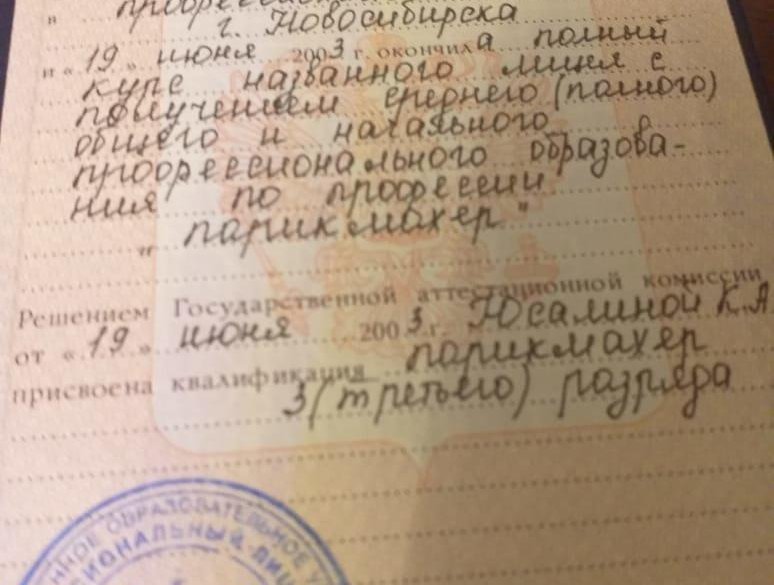 г. Новосибирска
и «19» июня 2003 г. окончила полный
курс названного лицея с
получением среднего (полного)
общего и начального
профессионального образова-
ния по профессии
"парикмахер"
Решением Государственной аттестационной комиссии
от «19» июня 2003 г. Юсалиной К.А
присвоена квалификация парикмахер
3 (третьего) разряда
ОБРАЗОВАТЕЛЬНОЕ